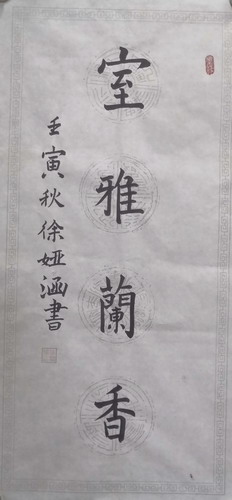 室雅蘭香
壬寅秋徐娅涵書